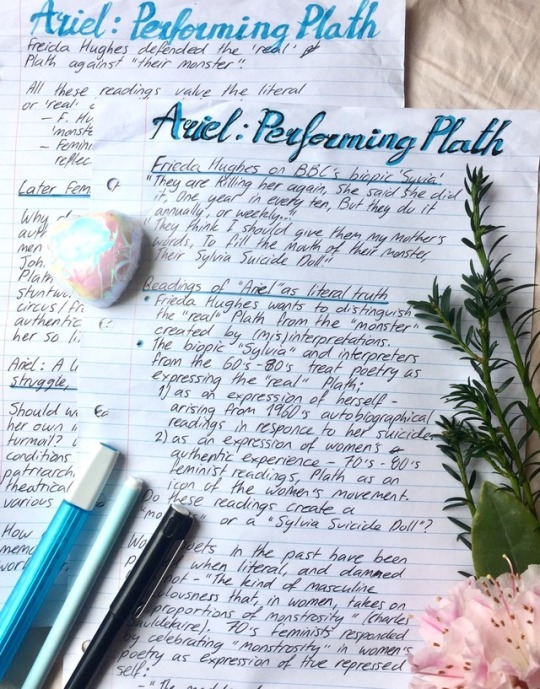 Ariel: Performing Plath
Freida Hughes defended the 'real'
Plath against "their monster"
All these readings value the literal
or 'real'
- F. Hu
'monste
- Femini
reflec
Later Fem
Why d
auth
men
Joh
Plath
stuntw
circus/fr
authentic
her so li
Ariel: A li
struggle,
Should w
her own i
turmoil?
conditions
patriarch
theatrical
various
How
memo
work
Ariel: Performing Plath
Frieda Hughes on BBC's biopic 'Sylvia'
"They are killing her again, She said she did
it, One year in every ten, But they do it
annually, or weekly."
"They think I should give them my mother's
words, To fill the mouth of their monster
Their Sylvia Suicide Doll"
Readings of "Ariel" as literal truth
• Frieda Hughes wants to distinguish
the "real" Plath from the "monster"
created by (mis)interpretations.
• The biopic "Sylvia" and interpreters
from the 60's-80's treat poetry as
expressing the "real" Plath;
1) as an expression of herself -
arising from 1960's autobiographical
readings in responce to her suicide
2) as an expression of women's
authentic experience - 70's-80's
feminist readings, Plath as an
icon of the women's movement.
Do these readings create a
"mo or a "Sylvia Suicide Doll"?
Wo poets in the past have been
p when literal, and damned
not - "The kind of masculine
ulousness that, in women, takes on
proportions of monstrosity" (Charles
Baudelaire). 70's feminists responded
by celebrating "monstrosity" in women's
poetry as expression of true repressed
self:
- "The